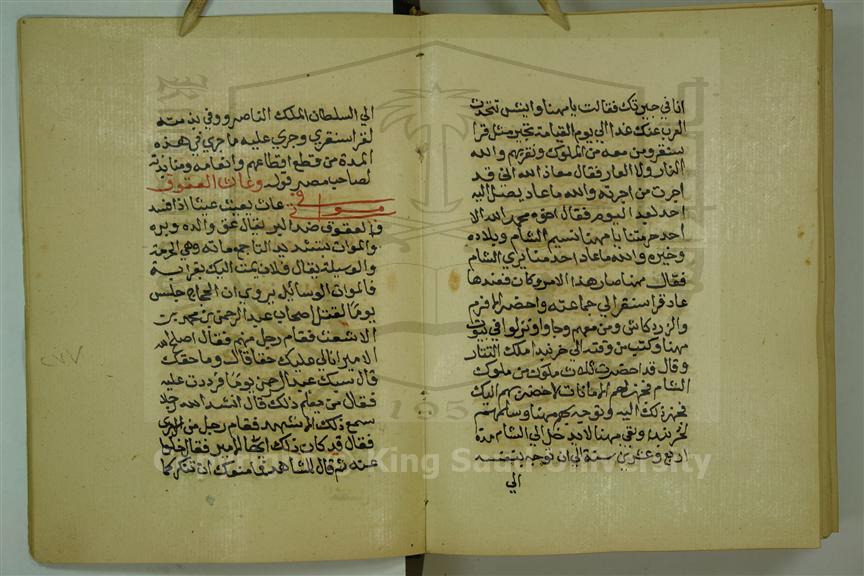 انا في جيرتك فقالت يا مهنا وايش تتحدث
العرب عنك غدا الي يوم القيامة تجير مثل قرا
سنقر ومن معه من الملوك وتقريهم والله
النار ولا العار فقال معاذ الله اني قد
اجرت من اجرته والله ما عاد يصل اليه
احد بعد اليوم فقال اخوه محمد الا
احد حرمتنا يا مهنا نسيم الشام وبلاده
وخيره والله ما عاد احد منا يري الشام
فقال مهنا صار هذا الامر وكان فعندها
عاد قراسنقر الي جماعته واحضر الافرم
والزردكاش ومن معهم وجاوا ونزلوا في بيوت
مهنا وكتب من وقته الي خربندا ملك التتار
وقال قد احضرت ثلاث ملوك من ملوك
الشام فجهز لهم الامانات لاحضرهم اليك
فجهز ذلك اليه وتوجه بهم مهنا وسلمهم
لخربندا وبقي مهنا لا يدخل الي الشام مدة
اربع وعشرين سنة الي ان توجه بنفسه
الي
الي السلطان الملك الناصر ووفي بذمته
لقراسنقر وجري عليه ما جري في هذه
المدة من قطع اقطاعهم وانعامه ومنابذته
لصاحب مصر قوله وعاث العقوق
في مواتي عاث يعيث عيثا اذا افسد
والعقوق ضد البر يقال عق والده وبره
والموات بتشديد التا جمع ماتة وهي الحرمة
والوسيلة يقال فلان يمت اليك بقرابة
فالموات الوسائل يروي ان الحجاج جلس
يوما لقتل اصحاب عبد الرحمن بن محمد بن
الاشعث فقام رجل منهم فقال اصلح الله
الامير ان لي عليك حقا قال وما حقك
قال سبك عبد الرحمن يوما فرددت عليه
فقال من يعلم ذلك قال انشد الله رجلا
سمع ذلك الا شهد فقام رجل من الاسري
فقال قد كان ذلك ايها الامير فقال خلوا
عنه ثم قال للشاهد فما منعك ان تنكر كما
Copyright © King Saud University
1957